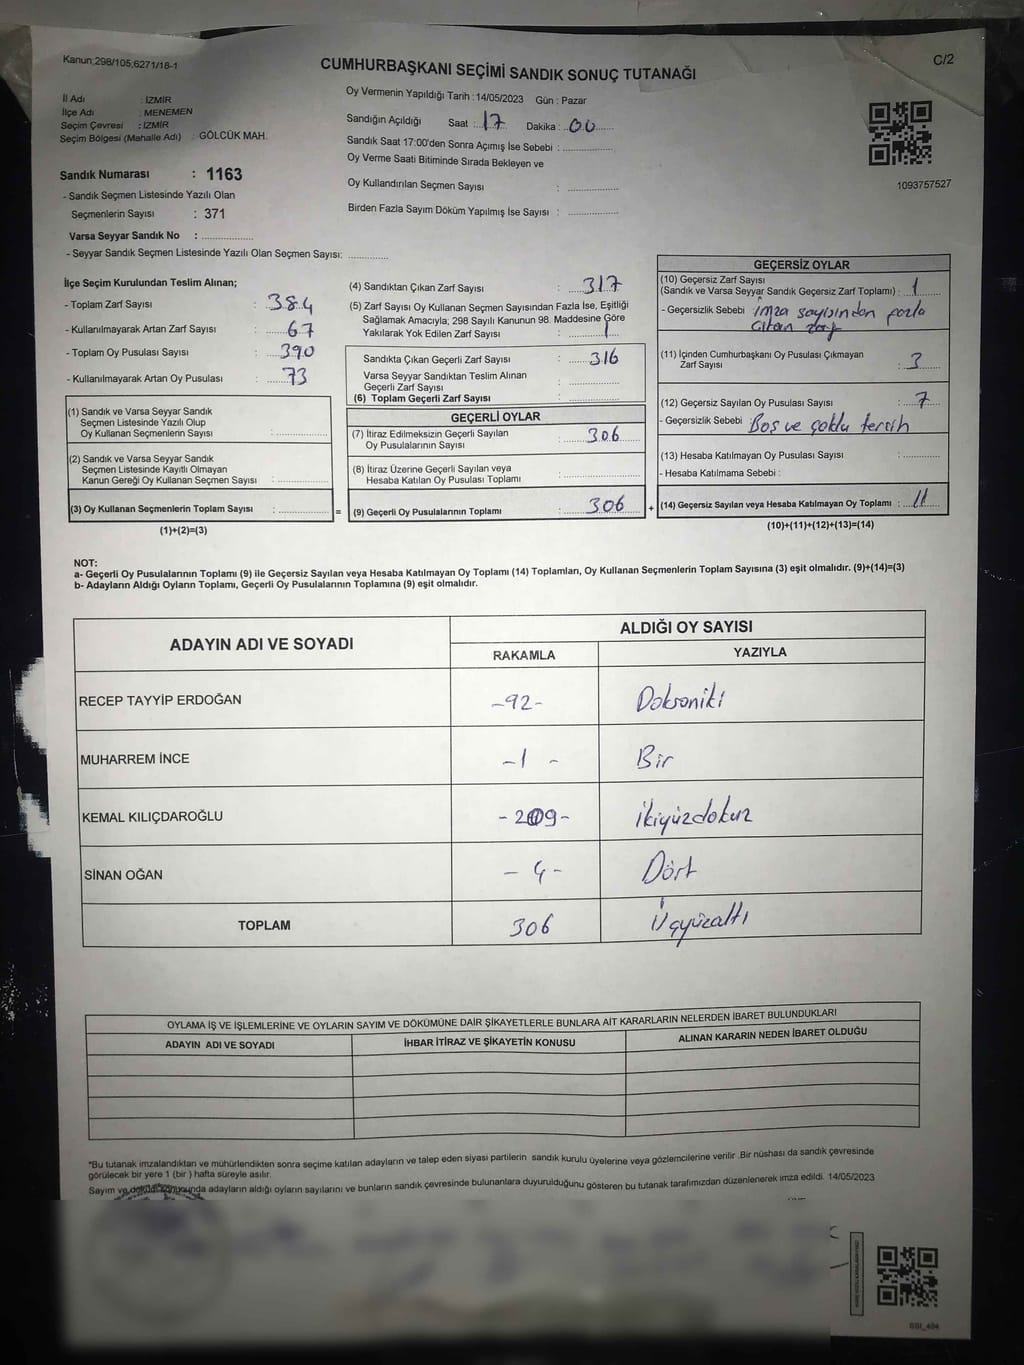 Kanun;298/105,6271/18-1
C/2
CUMHURBAŞKANI SEÇİMİ SANDIK SONUÇ TUTANAĞI
İl Adı : İZMİR
İlçe Adı : MENEMEN
Seçim Çevresi : İZMİR
Seçim Bölgesi (Mahalle Adı) : GÖLCÜK MAH.
Oy Vermenin Yapıldığı Tarih : 14/05/2023 Gün : Pazar
Sandığın Açıldığı Saat : 17 Dakika : 00
Sandık Saat 17:00'den Sonra Açımış İse Sebebi :
Oy Verme Saati Bitiminde Sırada Bekleyen ve
Oy Kullandırılan Seçmen Sayısı :
Birden Fazla Sayım Döküm Yapılmış İse Sayısı :
1093757527
Sandık Numarası : 1163
- Sandık Seçmen Listesinde Yazılı Olan
Seçmenlerin Sayısı : 371
Varsa Seyyar Sandık No :
- Seyyar Sandık Seçmen Listesinde Yazılı Olan Seçmen Sayısı:
İlçe Seçim Kurulundan Teslim Alınan;
- Toplam Zarf Sayısı : 384
- Kullanılmayarak Artan Zarf Sayısı : 67
- Toplam Oy Pusulası Sayısı : 390
- Kullanılmayarak Artan Oy Pusulası : 73
(1) Sandık ve Varsa Seyyar Sandık
Seçmen Listesinde Yazılı Olup
Oy Kullanan Seçmenlerin Sayısı :
(2) Sandık ve Varsa Seyyar Sandık
Seçmen Listesinde Kayıtlı Olmayan
Kanun Gereği Oy Kullanan Seçmen Sayısı :
(3) Oy Kullanan Seçmenlerin Toplam Sayısı : =
(1)+(2)=(3)
(4) Sandıktan Çıkan Zarf Sayısı : 317
(5) Zarf Sayısı Oy Kullanan Seçmen Sayısından Fazla İse, Eşitliği
Sağlamak Amacıyla; 298 Sayılı Kanunun 98. Maddesine Göre
Yakılarak Yok Edilen Zarf Sayısı : 1
Sandıkta Çıkan Geçerli Zarf Sayısı : 316
Varsa Seyyar Sandıktan Teslim Alınan
Geçerli Zarf Sayısı :
(6) Toplam Geçerli Zarf Sayısı :
GEÇERLİ OYLAR
(7) İtiraz Edilmeksizin Geçerli Sayılan
Oy Pusulalarının Sayısı : 306
(8) İtiraz Üzerine Geçerli Sayılan veya
Hesaba Katılan Oy Pusulası Toplamı :
(9) Geçerli Oy Pusulalarının Toplamı : 306 +
GEÇERSİZ OYLAR
(10) Geçersiz Zarf Sayısı
(Sandık ve Varsa Seyyar Sandık Geçersiz Zarf Toplamı) : 1
- Geçersizlik Sebebi : imza sayısından fazla
çıkan zarf
(11) İçinden Cumhurbaşkanı Oy Pusulası Çıkmayan
Zarf Sayısı : 3
(12) Geçersiz Sayılan Oy Pusulası Sayısı : 7
- Geçersizlik Sebebi : Boş ve çoklu tercih
(13) Hesaba Katılmayan Oy Pusulası Sayısı :
- Hesaba Katılmama Sebebi :
(14) Geçersiz Sayılan veya Hesaba Katılmayan Oy Toplamı : 11
(10)+(11)+(12)+(13)=(14)
NOT:
a- Geçerli Oy Pusulalarının Toplamı (9) ile Geçersiz Sayılan veya Hesaba Katılmayan Oy Toplamı (14) Toplamları, Oy Kullanan Seçmenlerin Toplam Sayısına (3) eşit olmalıdır. (9)+(14)=(3)
b- Adayların Aldığı Oyların Toplamı, Geçerli Oy Pusulalarının Toplamına (9) eşit olmalıdır.
ADAYIN ADI VE SOYADI
ALDIĞI OY SAYISI
RAKAMLA YAZIYLA
RECEP TAYYİP ERDOĞAN -92- Doksaniki
MUHARREM İNCE -1- Bir
KEMAL KILIÇDAROĞLU -209- ikiyüzdokuz
SİNAN OĞAN -4- Dört
TOPLAM 306 Üçyüzaltı
OYLAMA İŞ VE İŞLEMLERİNE VE OYLARIN SAYIM VE DÖKÜMÜNE DAİR ŞİKAYETLERLE BUNLARA AİT KARARLARIN NELERDEN İBARET BULUNDUKLARI
ADAYIN ADI VE SOYADI İHBAR İTİRAZ VE ŞİKAYETİN KONUSU ALINAN KARARIN NEDEN İBARET OLDUĞU
*Bu tutanak imzalandıktan ve mühürlendikten sonra seçime katılan adayların ve talep eden siyasi partilerin sandık kurulu üyelerine veya gözlemcilerine verilir .Bir nüshası da sandık çevresinde
görülecek bir yere 1 (bir ) hafta süreyle asılır.
Sayım ve döküm sonunda adayların aldığı oyların sayılarını ve bunların sandık çevresinde bulunanlara duyurulduğunu gösteren bu tutanak tarafımızdan düzenlenerek imza edildi. 14/05/2023